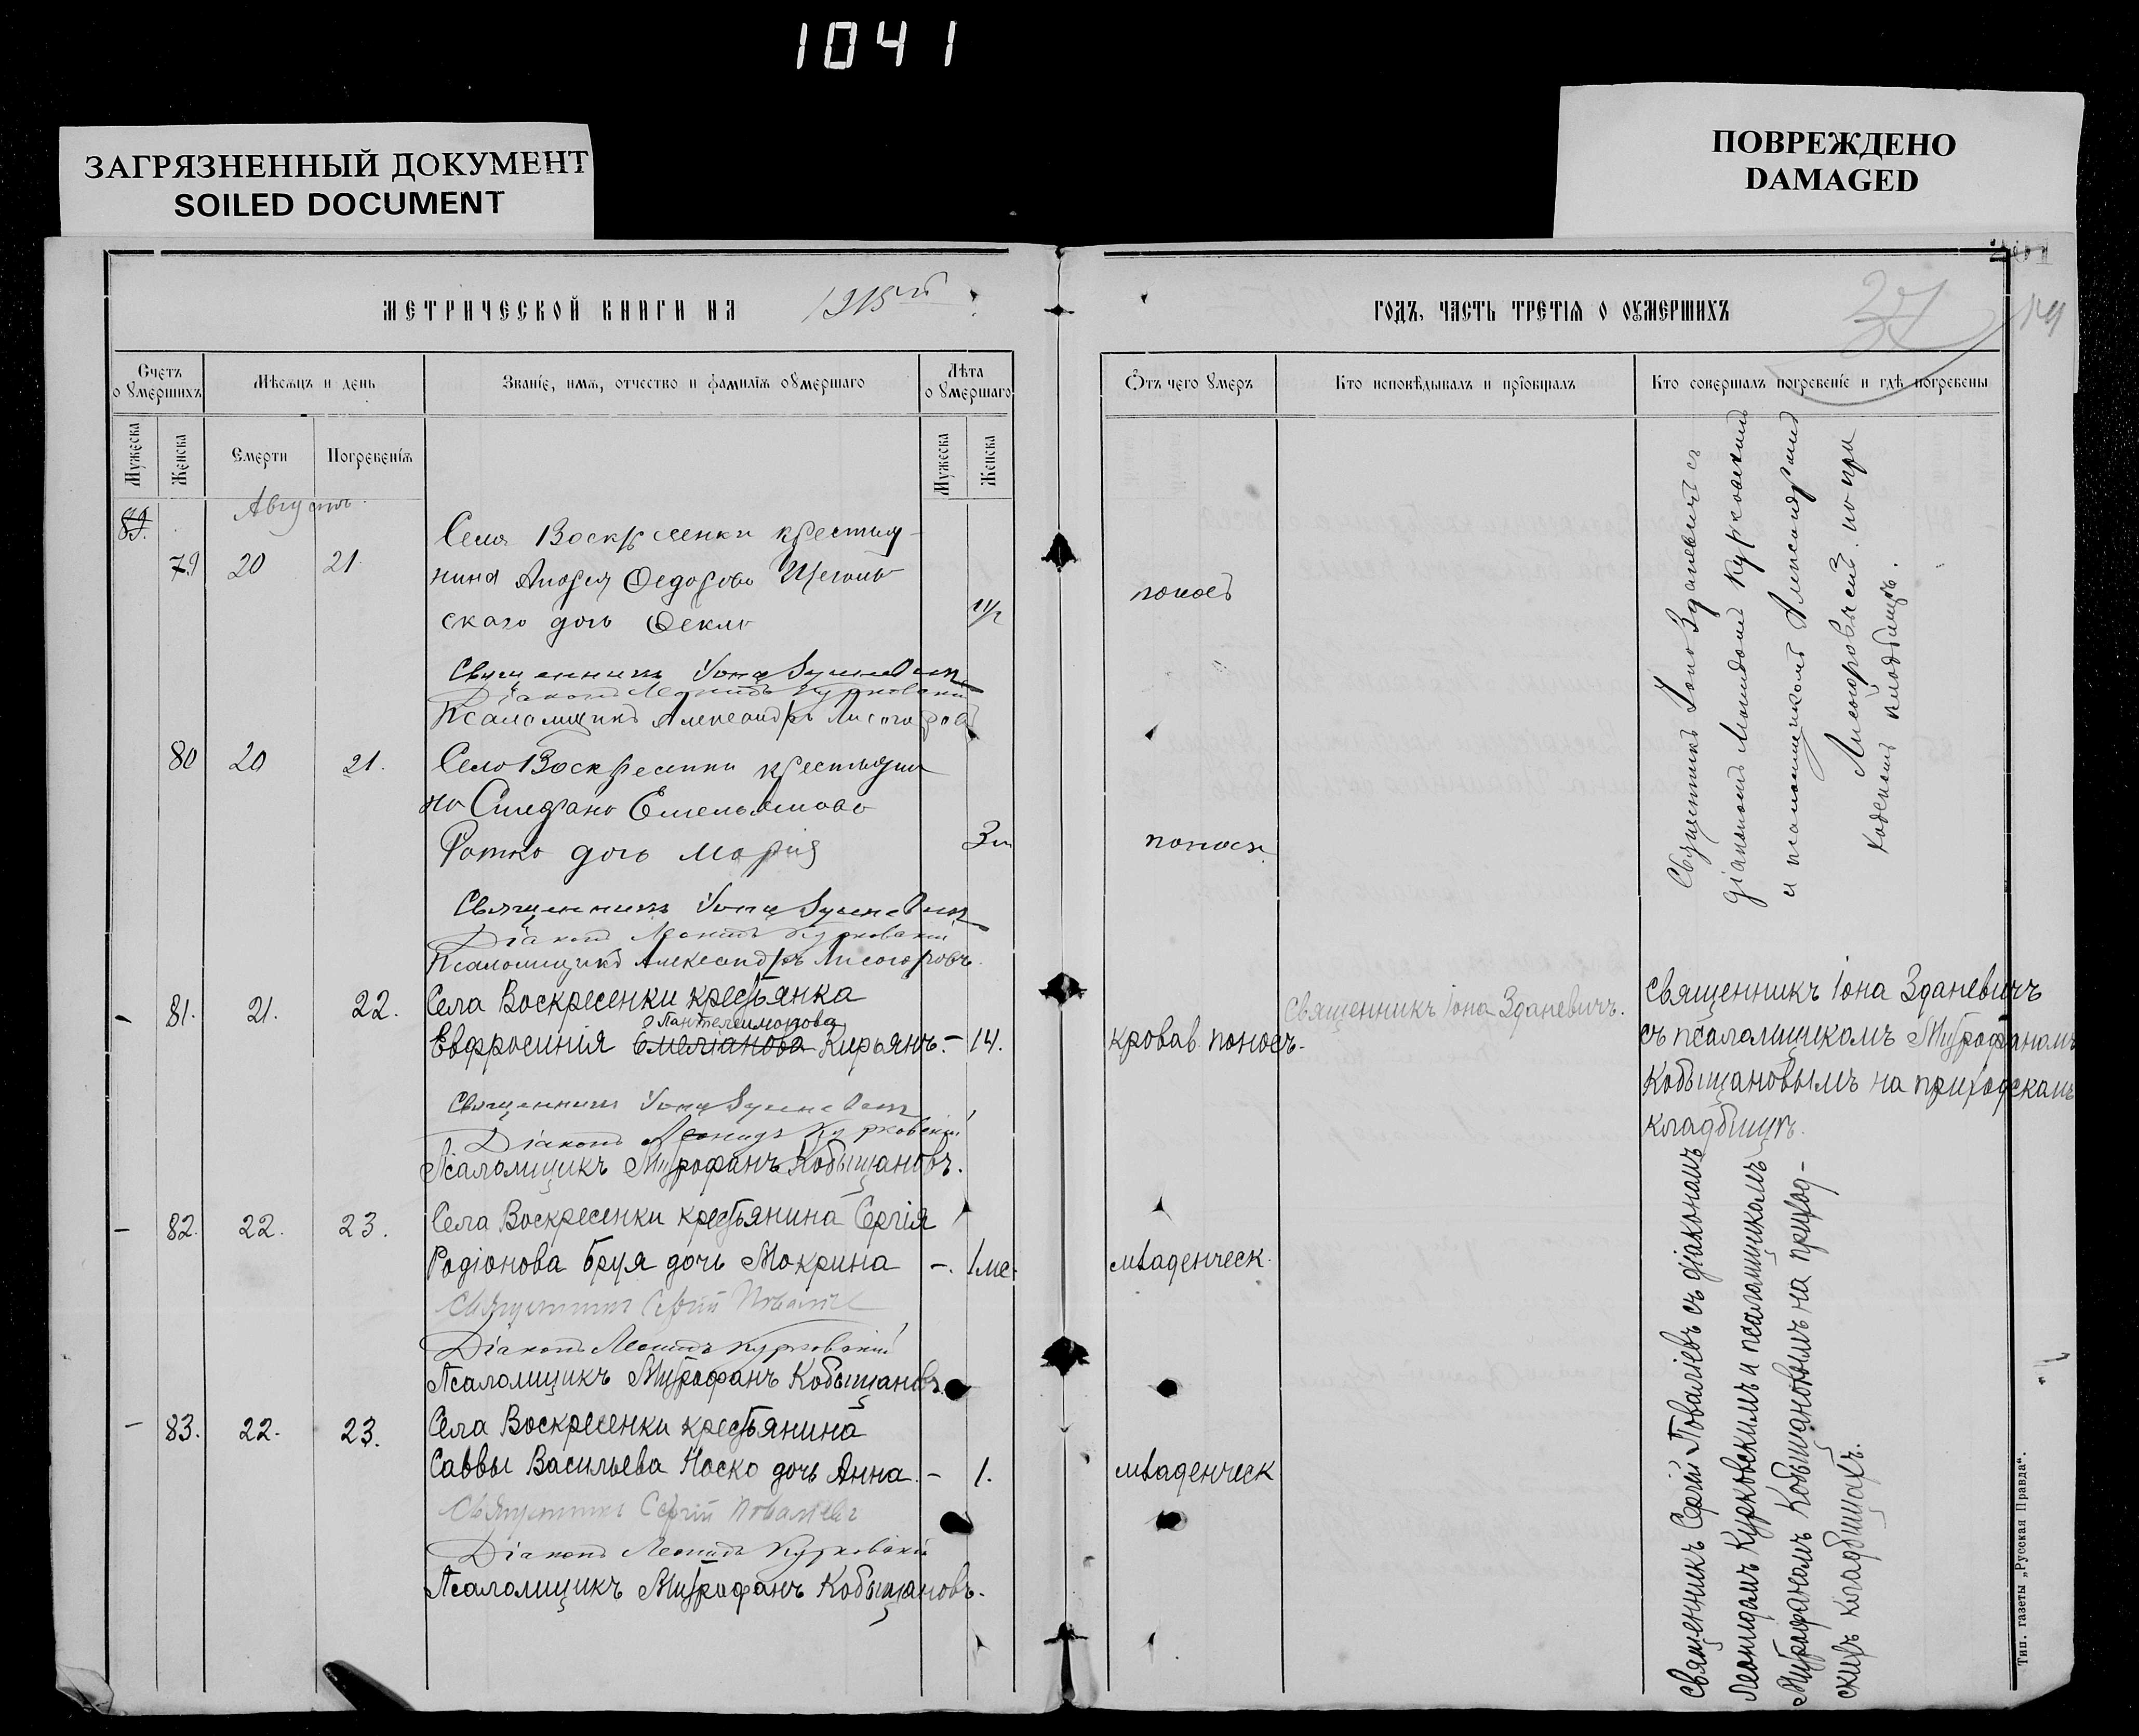 1041
ЗАГРЯЗНЕННЫЙ ДОКУМЕНТ
SOILED DOCUMENT
ПОВРЕЖДЕНО
DAMAGED
МЕТРИЧЕСКОЙ КНИГИ НА 1915й
Счетъ о умершихъ
Мѣсяцъ и день
Званіе, имя, отчество и фамилія умершаго
Лѣта умершаго
Мужеска
Женска
Смерти
Погребенія
Мужеска
Женска
Августъ
79 20 21
Села Воскресенки крестья-
нина Андрея Федорова Щеголь-
скаго дочь Фекла
Священникъ Іона Зданевичъ
Діаконъ Леонидъ Курковскій
Псаломщикъ Александръ Лисогоровъ
80 20 21.
Села Воскресенки крестьяни
на Стефана Емельянова
Ротко дочь Марія
Священникъ Іона Зданевичъ
Діаконъ Леонидъ Курковскій
Псаломщикъ Александръ Лисогоровъ.
- 81. 21. 22.
Села Воскресенки крестьянка
Пантелеимонова
Евфросинія Емеліанова Кирьянъ. - 14.
Священникъ Іона Зданевичъ
Діаконъ Леонидъ Курковскій
Псаломщикъ Митрофанъ Кобыщановъ.
- 82. 22. 23.
Села Воскресенки крестьянина Сергія
Родіонова Бруя дочь Мокрина -. 1 ме.
Священникъ Сергій Поваліевъ
Діаконъ Леонидъ Курковскій
Псаломщикъ Митрофанъ Кобыщановъ.
- 83. 22. 23.
Села Воскресенки крестьянина
Саввы Васильева Носко дочь Анна. - 1.
Священникъ Сергій Поваліевъ
Діаконъ Леонидъ Курковскій
Псаломщикъ Митрофанъ Кобыщановъ.
ГОДЪ, ЧАСТЬ ТРЕТІЯ О УМЕРШИХЪ
37
Отъ чего умеръ
Кто исповѣдывалъ и пріобщалъ
Кто совершалъ погребеніе и гдѣ погребены
поносъ
поносъ
кровав. поносъ.
Священникъ Іона Зданевичъ.
младенческ.
младенческ
Священникъ Іона Зданевичъ съ
діакономъ Леонидомъ Курковскимъ
и псаломщикомъ Александромъ
Лисогоровымъ на при
ходскомъ кладбищѣ.
Священникъ Іона Зданевичъ
съ псаломщикомъ Митрофаномъ
Кобыщановымъ на приходскомъ
кладбищѣ.
Священникъ Сергій Поваліевъ съ діакономъ
Леонидомъ Курковскимъ и псаломщикомъ
Митрофаномъ Кобыщановымъ на приход-
скихъ кладбищахъ.
Тип. газеты „Русская Правда“.